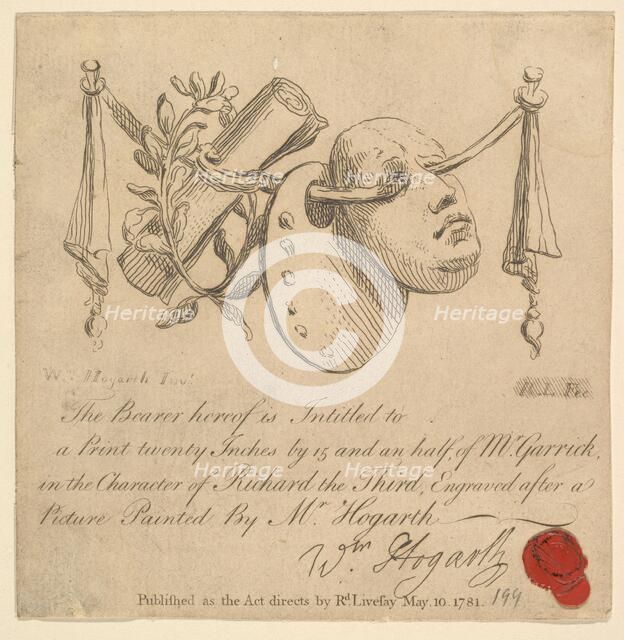 Wm. Hogarth Invt.
R. L. Fec.
The Bearer hereof is Intitled to
a Print twenty Inches by 15 and an half, of Mr. Garrick,
in the Character of Richard the Third, Engraved after a
Picture Painted By Mr. Hogarth
Wm Hogarth
Publiſhed as the Act directs by Rd. Liveſay May. 10. 1781.
199
Heritage
Heritage
Heritage
Heritage
Heritage
Heritage
Heritage
Heritage
©